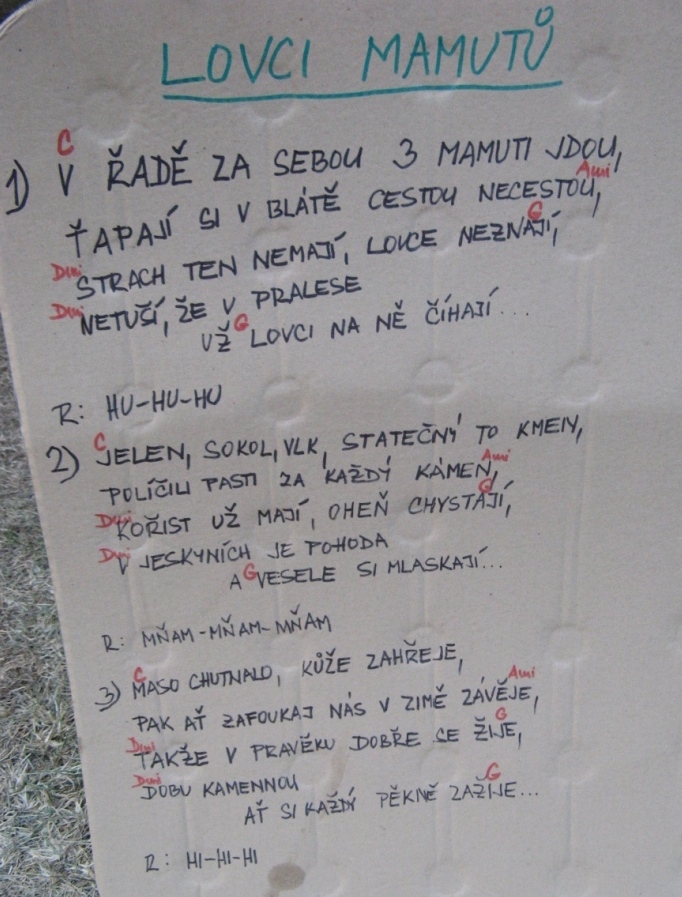 LOVCI MAMUTŮ
C
1) V ŘADĚ ZA SEBOU 3 MAMUTI JDOU,
Ami
ŤAPAJÍ SI V BLÁTĚ CESTOU NECESTOU,
G
Dmi STRACH TEN NEMAJÍ, LOVCE NEZNAJÍ,
Dmi NETUŠÍ, ŽE V PRALESE
UŽ G LOVCI NA NĚ ČÍHAJÍ...
R: HU-HU-HU
C
2) JELEN, SOKOL, VLK, STATEČNÝ TO KMEN,
Ami
POLÍČILI PASTI ZA KAŽDÝ KÁMEN,
G
Dmi KOŘIST UŽ MAJÍ, OHEŇ CHYSTAJÍ,
Dmi V JESKYNÍCH JE POHODA
A G VESELE SI MLASKAJÍ...
R: MŇAM-MŇAM-MŇAM
C
3) MASO CHUTNALO, KŮŽE ZAHŘEJE,
Ami
PAK AŤ ZAFOUKAJ NÁS V ZIMĚ ZÁVĚJE,
G
Dmi TAKŽE V PRAVĚKU DOBŘE SE ŽIJE,
Dmi DOBU KAMENNOU
G
AŤ SI KAŽDÝ PĚKNĚ ZAŽIJE...
R: HI-HI-HI